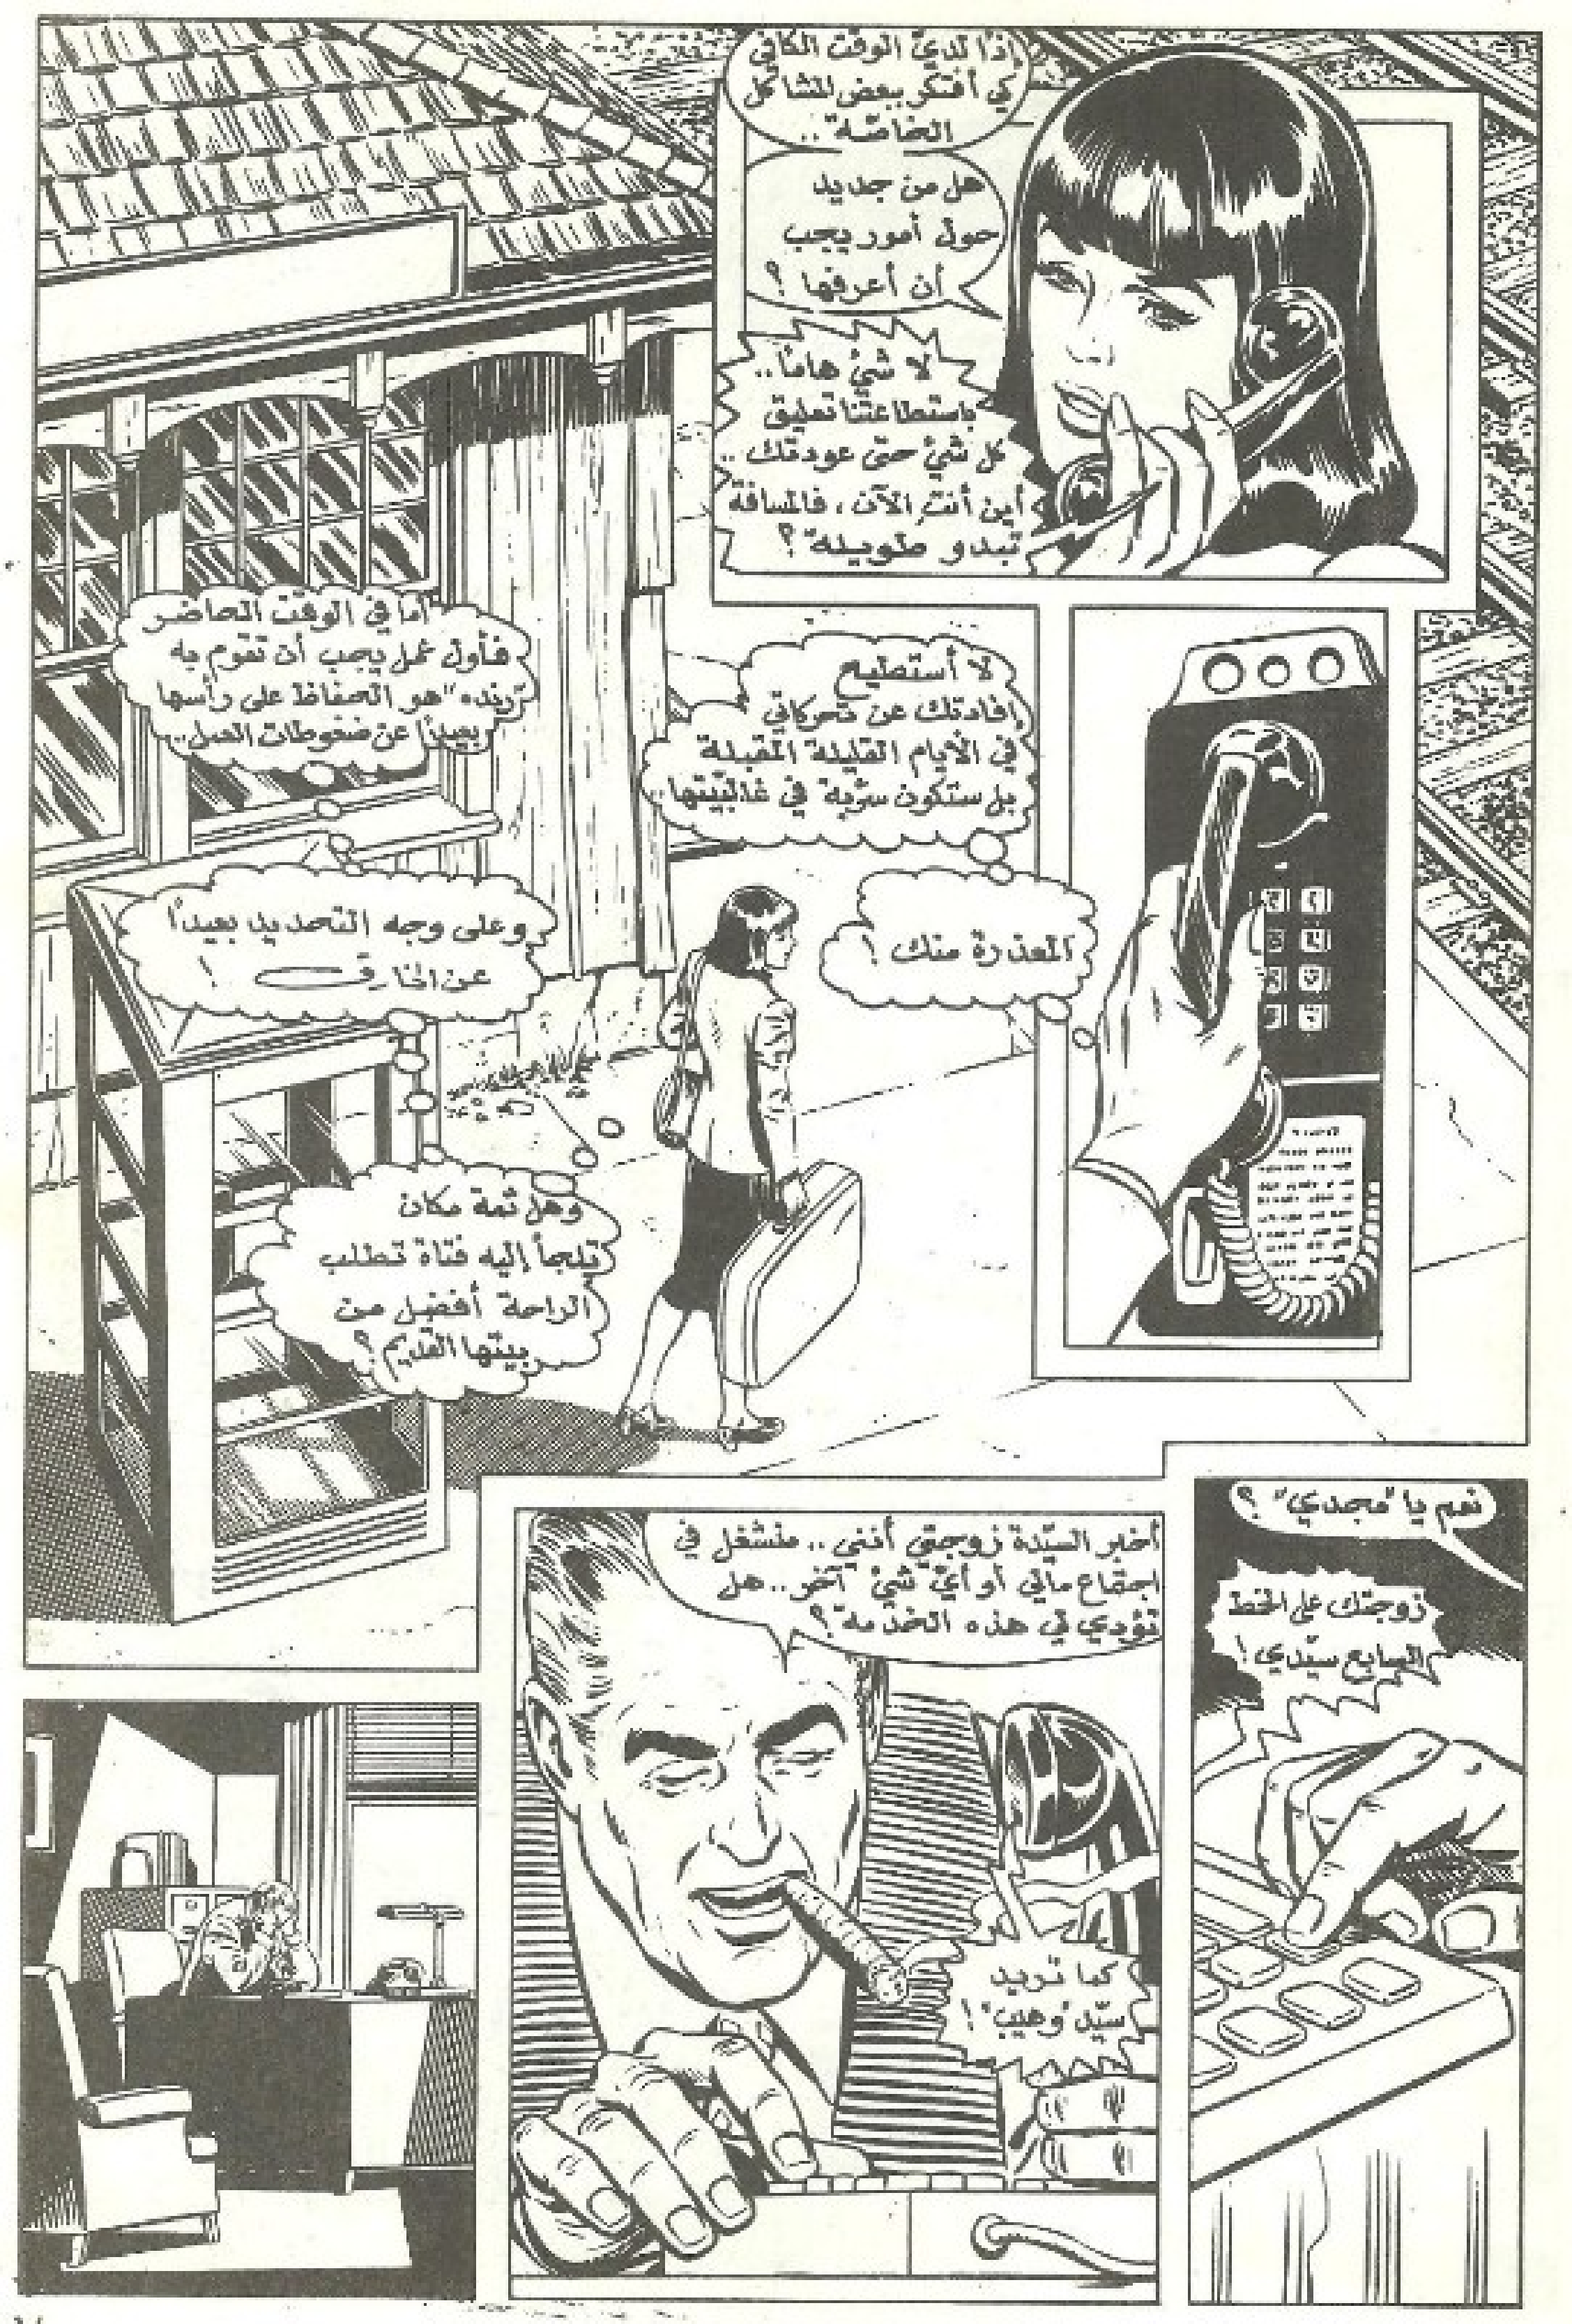 إذًا لديّ الوقت الكافي
كي أفتكر ببعض المشاكل
الخاصّة"..
هل من جديد
حول أمور يجب
أن أعرفها ؟
لا شيْ هامًا..
باستطاعتنا تعليق
كل شيْ حتى عودتك..
أين أنتِ الآن، فالمسافة
تبدو طويلة" ؟
لا أستطيع
إفادتك عن تحركاتي
في الأيام القليلة المقبلة
بل ستكون سرّية في غالبيّتها..
المعذرة منك !
أما في الوقت الحاضر
فأول عمل يجب أن تقوم به
"رنده" هو الحفاظ على رأسها
بعيدًا عن ضغوطات العمل..
وعلى وجه التحديد بعيدًا
عن الخارق !
وهل ثمة مكان
تلجأ إليه فتاة تطلب
الراحة أفضل من
بيتها القديم ؟
نعم يا "مجدي" ؟
زوجتك على الخط
السابع سيّدي !
أخبر السيّدة زوجتي أنني.. منشغل في
اجتماع مالي أو أيّ شيْ آخر.. هل
تؤدي لي هذه الخدمة ؟
كما تريد
سيّد "وهيب" !